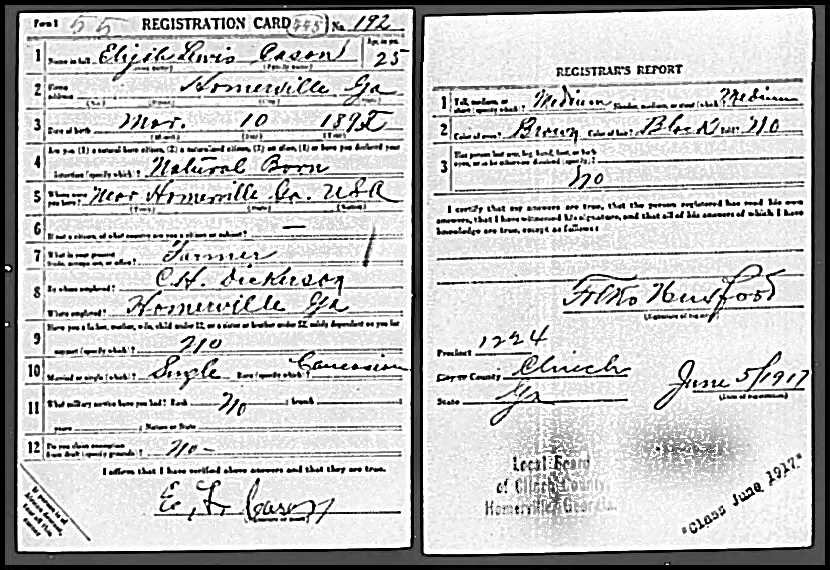 Form 1 55 REGISTRATION CARD 445 No. 192
1 Name in full Elijih Lewis Cason Age, in yrs. 25
(Given name) (Family name)
2 Home address Homerville Ga
(No.) (Street) (City) (State)
3 Date of birth Mar. 10
(Month) (Day) (Year)
4 Are you (1) a natural born citizen, (2) a naturalized citizen, (3) an alien, (4) or have you declared your
intention (specify which)? Natural Born
5 Where were you born? Near Homerville Ga. USA
(Town) (State) (Nation)
6 If not a citizen, of what country are you a citizen or subject? —
7 What is your present trade, occupation, or office? Farmer
8 By whom employed? C.H. Dickerson
Where employed? Homerville Ga
9 Have you a father, mother, wife, child under 12, or a sister or brother under 12, solely dependent on you for
support (specify which)? No
10 Married or single (which)? Single Race (specify which)? Caucasian
11 What military service have you had? Rank No branch
years Nation or State
12 Do you claim exemption from draft (specify grounds)? No -
I affirm that I have verified above answers and that they are true.
E. L. Cason
(Signature or mark)
REGISTRAR'S REPORT
1 Tall, medium, or short (specify which)? Medium Slender, medium, or stout (which)? Medium
2 Color of eyes? Brown Color of hair? Black Bald? No
3 Has person lost arm, leg, hand, foot, or both
eyes, or is he otherwise disabled (specify)?
No
I certify that my answers are true, that the person registered has read his own
answers, that I have witnessed his signature, and that all of his answers of which I have
knowledge are true, except as follows:
(Signature of registrar)
Precinct 1224
City or County Clinch
State Ga
June 5/1917
(Date of registration)
Local Board
of Clinch County,
Homerville Georgia.
"Class June 1917."